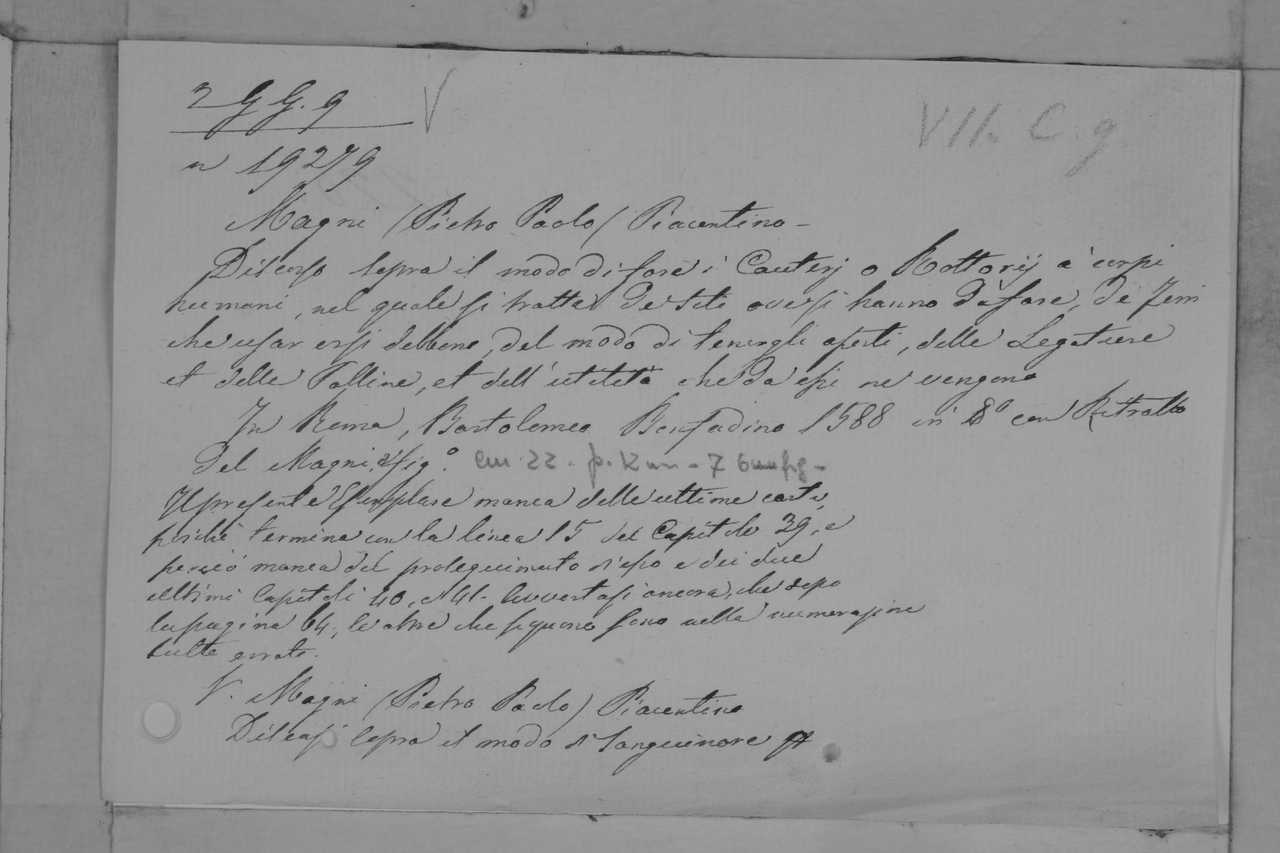 2 G G. 9 V
VII. C. g.
n 19279
Magni (Pietro Paolo) Piacentino -
Discorso sopra il modo di fare i Cauterj o Rottorij à corpi
humani, nel quale si tratta de siti ove si hanno da fare, de ferri
che usar essi debbono, del modo di tenergli aperti, delle Legature
et delle Palline, et dell'utilità che da essi ne vengono
In Roma, Bartolomeo Bonfadino 1588 in 8º con Ritratto
del Magni, e fig.º cm 22. p.
Il presente Esemplare manca delle ultime carte,
perchè termina con la linea 15 del Capitolo 39, e
perciò manca del proseguimento d'esso e dei due
ultimi Capitoli 40, e 41. Avvertasi ancora, che dopo
la pagina 64, le altre che seguono sono nella numerazione
tutte errate.
V. Magni (Pietro Paolo) Piacentino
Discorsi sopra il modo di sanguinare